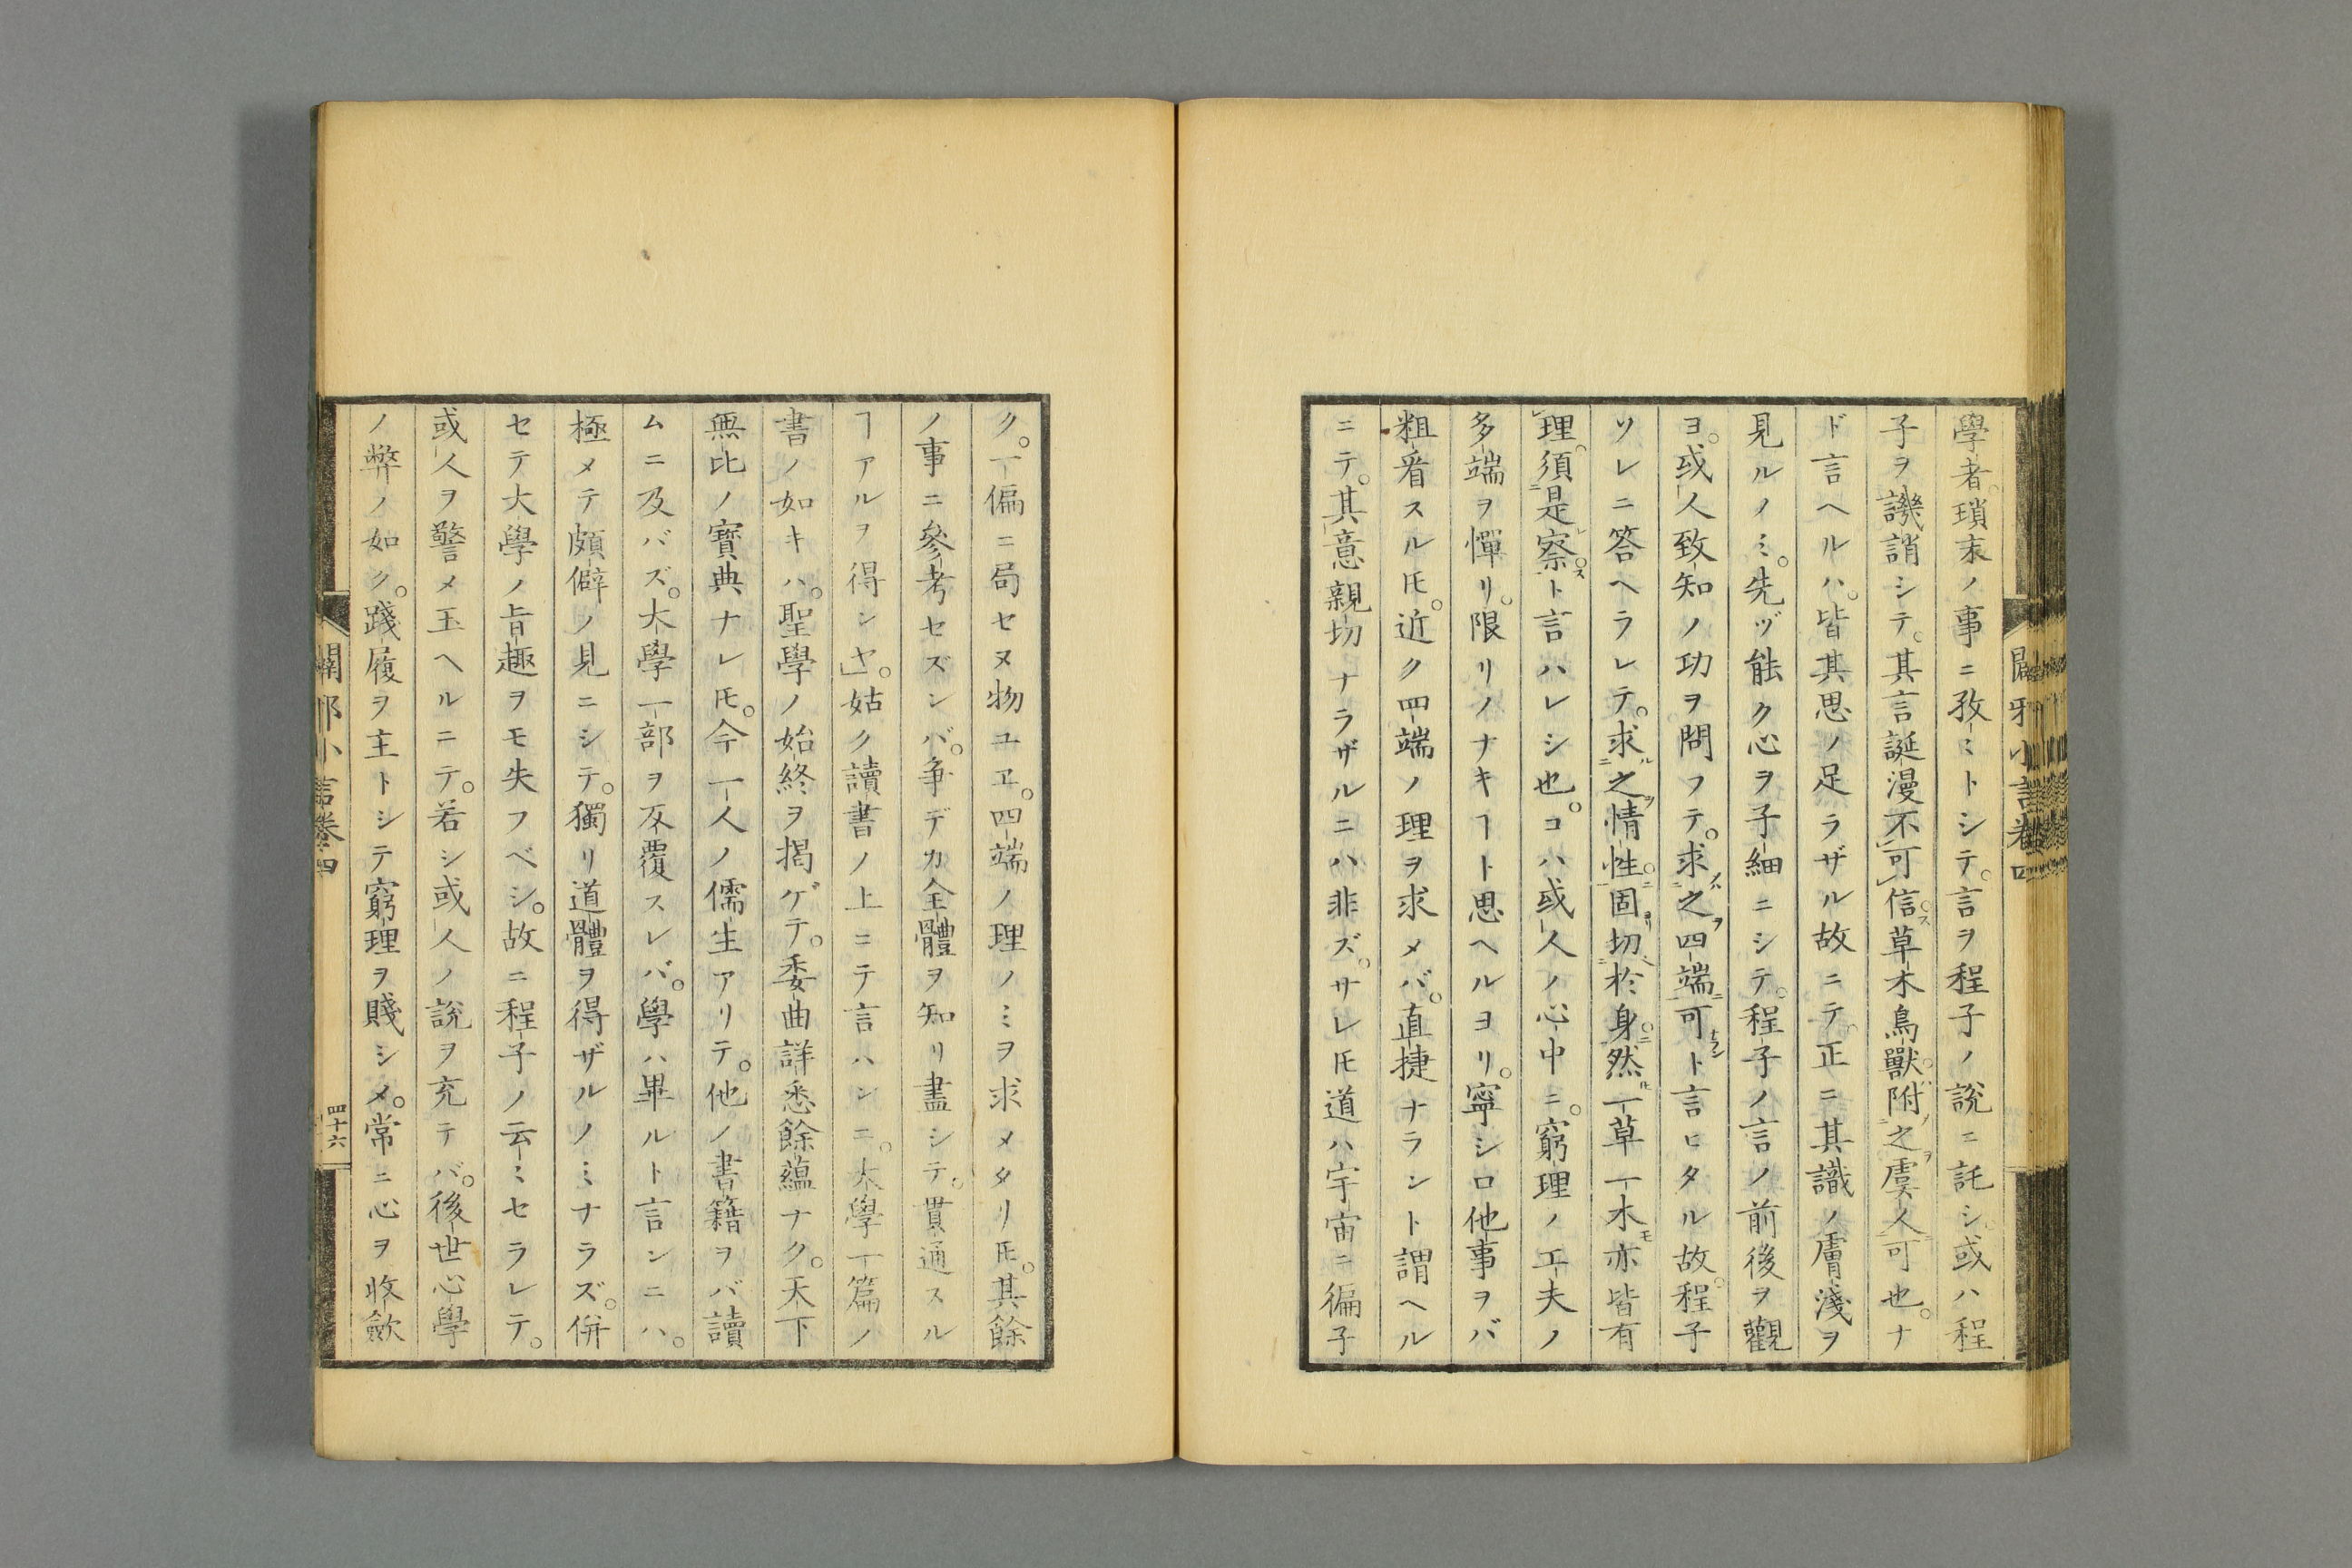 學者瑣末ノ事ニ孜〻トシテ。言ヲ程子ノ說ニ託シ。或ハ程
子ヲ譏誚シテ。其言誕漫不可信草木鳥獸附之虞人可也。ナ
ド言ヘルハ。皆其思ノ足ラザル故ニテ。正ニ其識ノ膚淺ヲ
見ルノミ。先ヅ能ク心ヲ子細ニシテ。程子ノ言ノ前後ヲ觀
ヨ。或人致知ノ功ヲ問フテ。求之四端可ト言ヒタル故。程子
ソレニ答ヘラレテ。求之情性固切於身然一草一木亦皆有
理。須是察ト言ハレシ也。コハ或人ノ心中ニ。窮理ノ工夫ノ
多端ヲ憚リ。限リノナキヿト思ヘルヨリ。寧シロ他事ヲバ
粗看スル𪜈。近ク四端ノ理ヲ求メバ。直捷ナラント謂ヘル
ニテ。其意親切ナラザルニハ非ズ。サレ𪜈道ハ宇宙ニ徧子
闢邪小言卷四
ク。一偏ニ局セヌ物ユヱ。四端ノ理ノミヲ求メタリ𪜈。其餘
ノ事ニ參考セズンバ。争デカ全體ヲ知リ盡シテ。貫通スル
ヿアルヲ得ンヤ。姑ク讀書ノ上ニテ言ハンニ。大學一篇ノ
書ノ如キハ。聖學ノ始終ヲ掲ゲテ。委曲詳悉餘蘊ナク。天下
無比ノ寶典ナレ𪜈。今一人ノ儒生アリテ。他ノ書籍ヲバ讀
ムニ及バズ。大學一部ヲ反覆スレバ。學ハ畢ルト言ンニハ。
極メテ頗僻ノ見ニシテ。獨リ道體ヲ得ザルノミナラズ。併
セテ大學ノ旨趣ヲモ失フベシ。故ニ程子ノ云〻セラレテ。
或人ヲ警メ玉ヘルニテ。若シ或人ノ說ヲ充テバ。後世心學
ノ弊ノ如ク。踐履ヲ主トシテ窮理ヲ賤シメ。常ニ心ヲ收歛
闢邪小言卷四
四十六